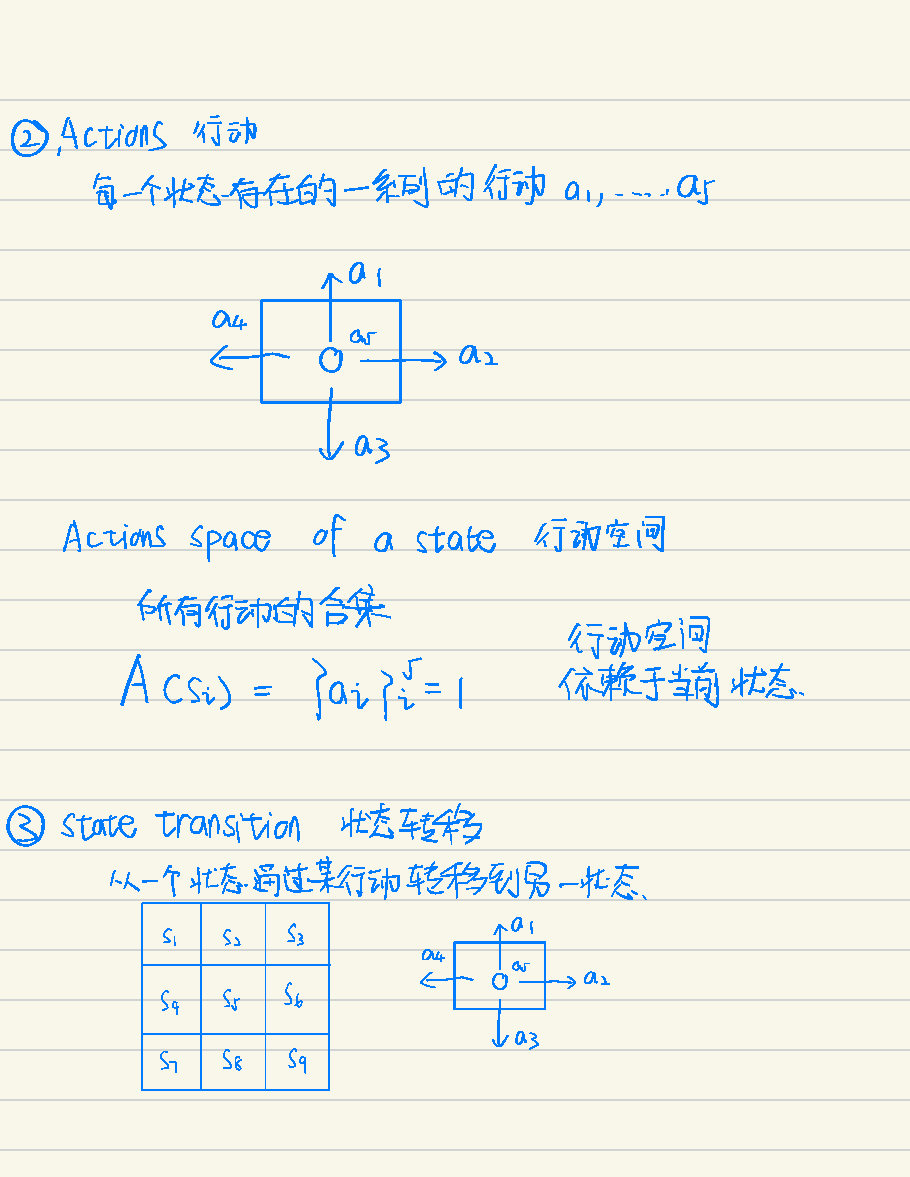 ② Actions 行动
每一个状态存在的一系列的行动 a1, ..... a5
a1
a4
a5
a2
a3
Actions space of a state 行动空间
所有行动的合集
行动空间
A(si) = {ai}⁵i=1
依赖于当前状态.
③ state transition 状态转移
从一个状态通过某行动转移到另一状态.
s1 s2 s3
s4 s5 s6
s7 s8 s9
a1
a4
a5
a2
a3